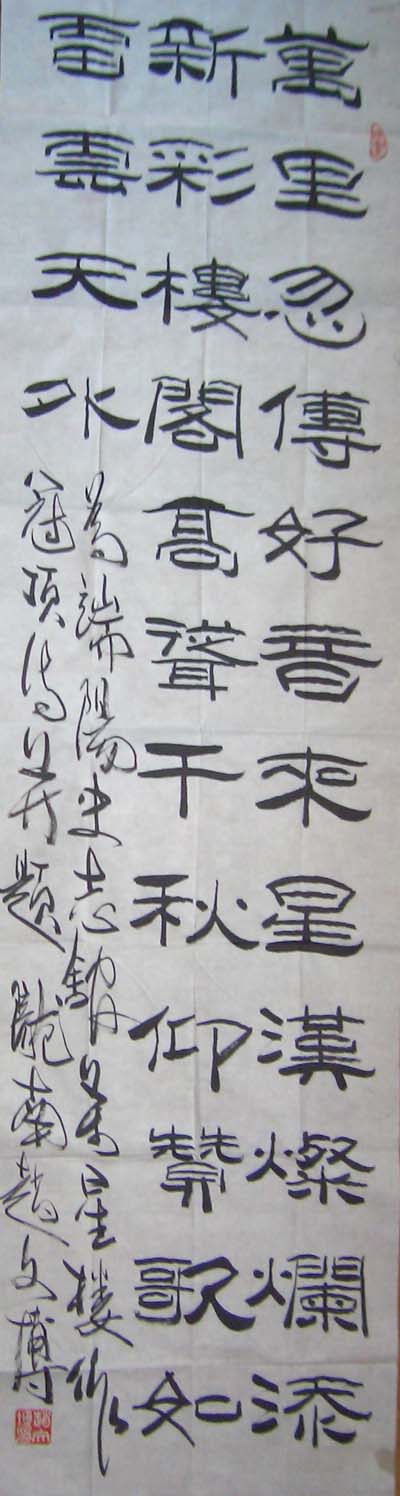 萬里忽傳好音來星漢燦爛添
新彩樓閣高聳千秋仰贊歌如
雷雲天外
为端陽史志館萬星楼作
冠頂詩題 隴南趙文博